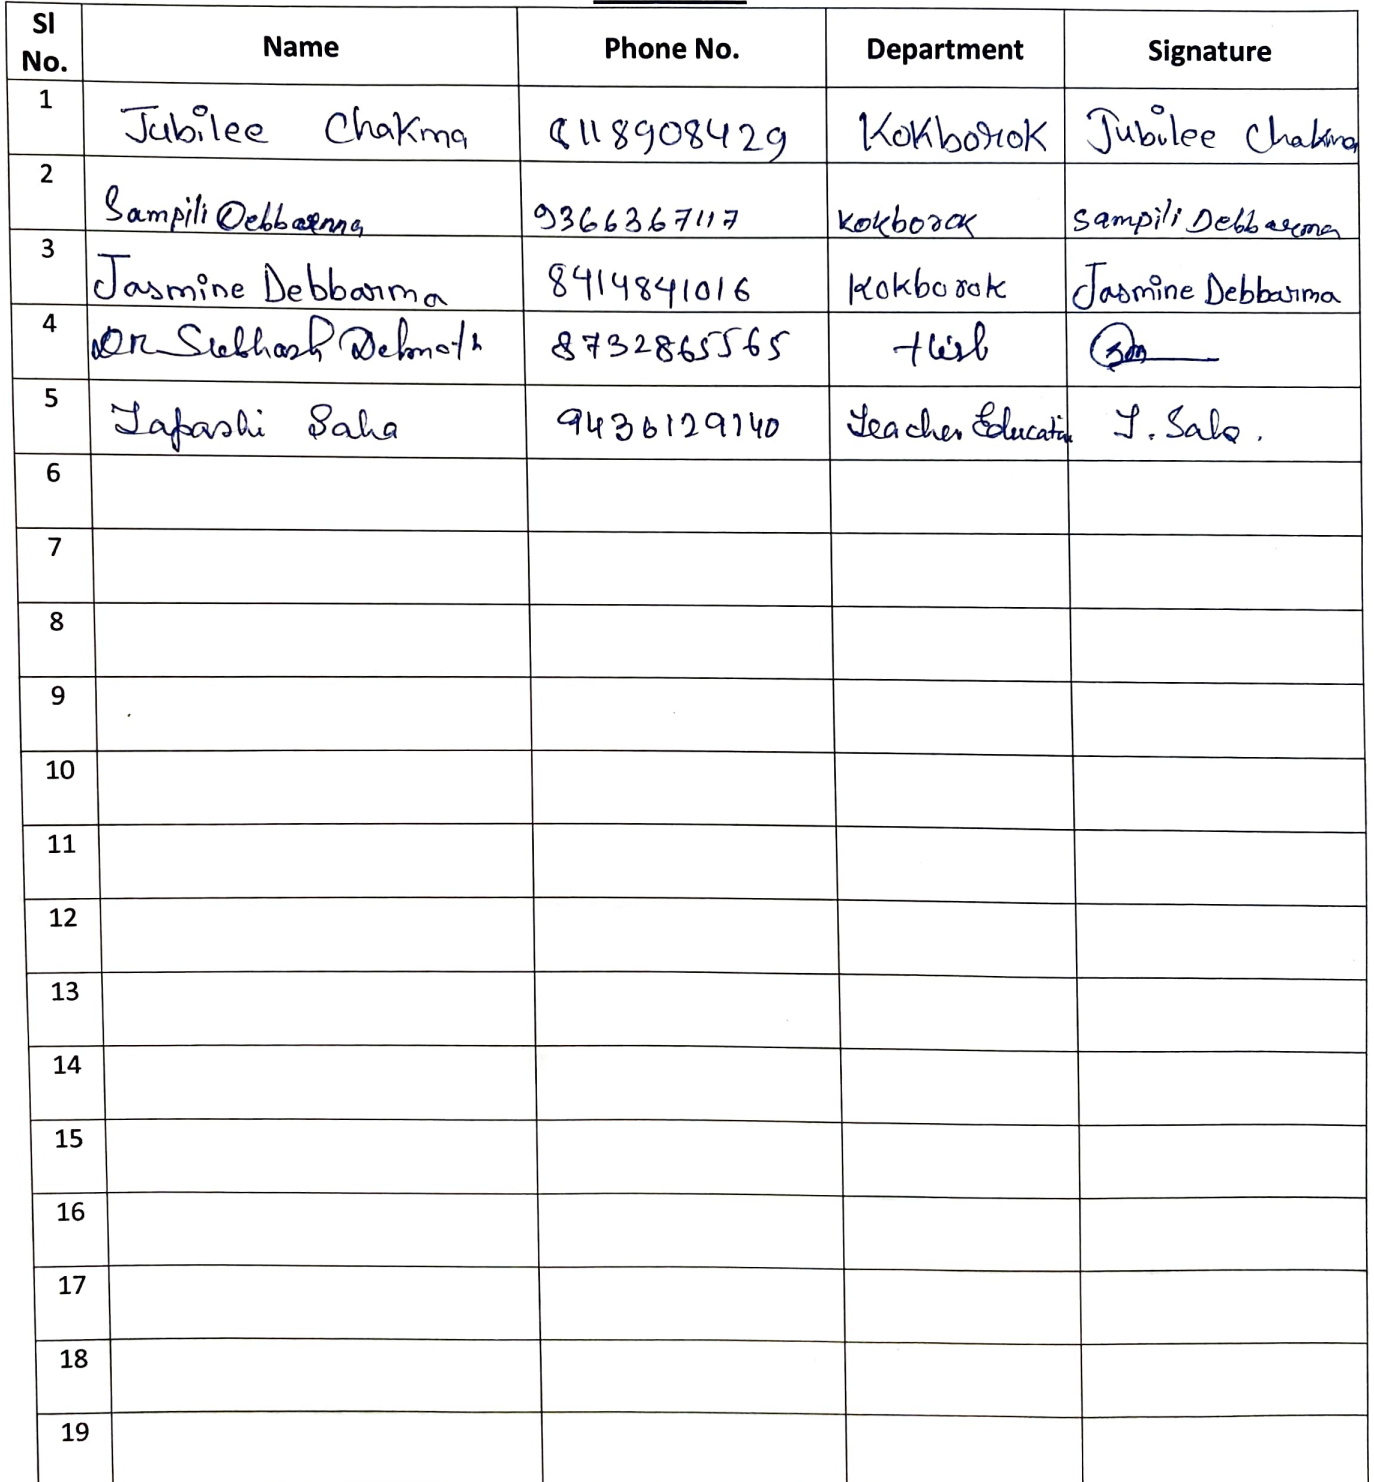 Sl No. Name Phone No. Department Signature
1 Jubilee Chakma 8118908429 Kokborok Jubilee Chakma
2 Sampili Debbarma 9366367117 Kokborok Sampili Debbarma
3 Jasmine Debbarma 8414841016 Kokborok Jasmine Debbarma
4 DR Subhash Debnath 8732865565
5 Tapashi Saha 9436129140 Teacher Education T. Saha.
6
7
8
9
10
11
12
13
14
15
16
17
18
19